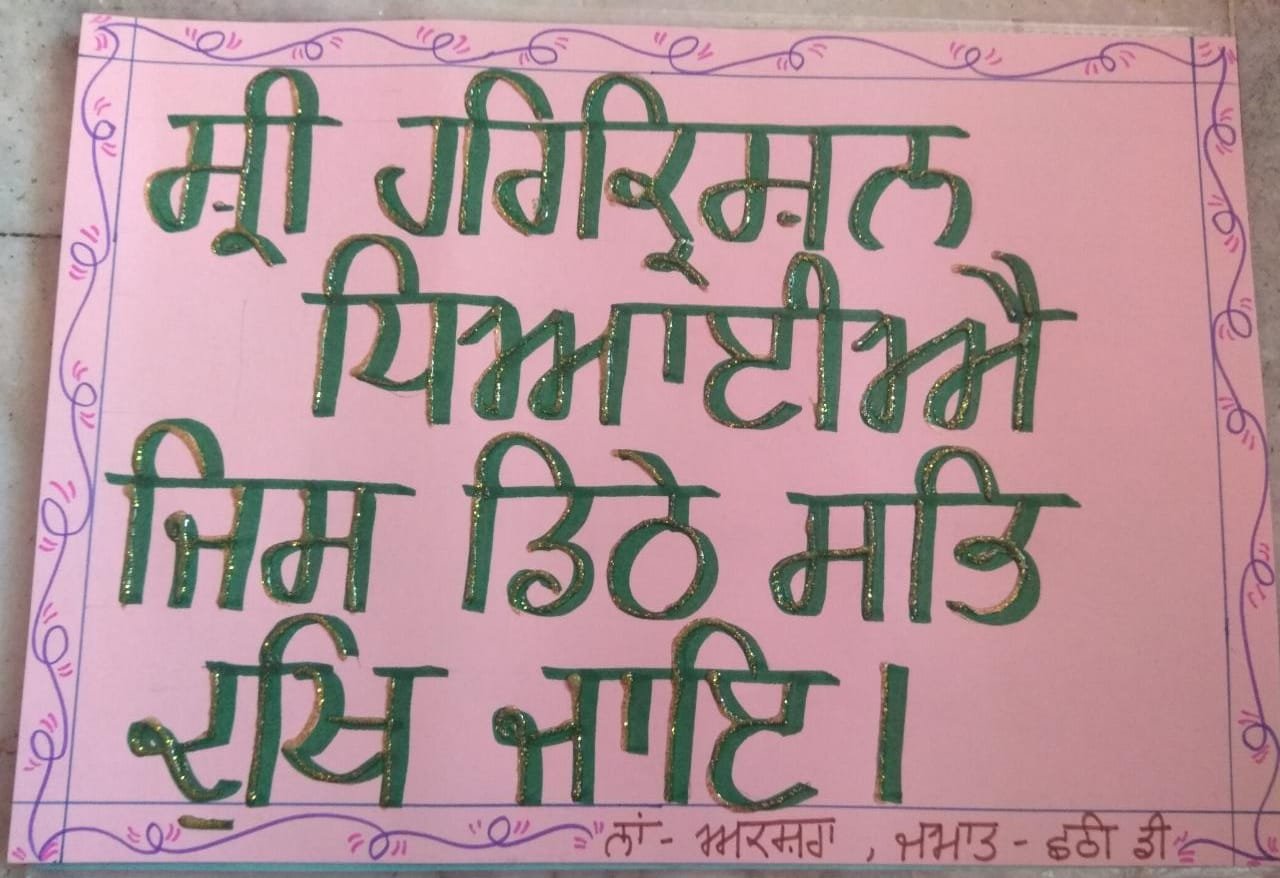 ਸ਼੍ਰੀ ਹਰਿਕ੍ਰਿਸ਼ਨ
ਧਿਆਈਐ
ਜਿਸ ਡਿਠੇ ਸਭਿ
ਦੁਖਿ ਜਾਇ।
ਨਾਂ - ਅਕਸ਼ਰਾ , ਜਮਾਤ - ਛਠੀ ਡੀ